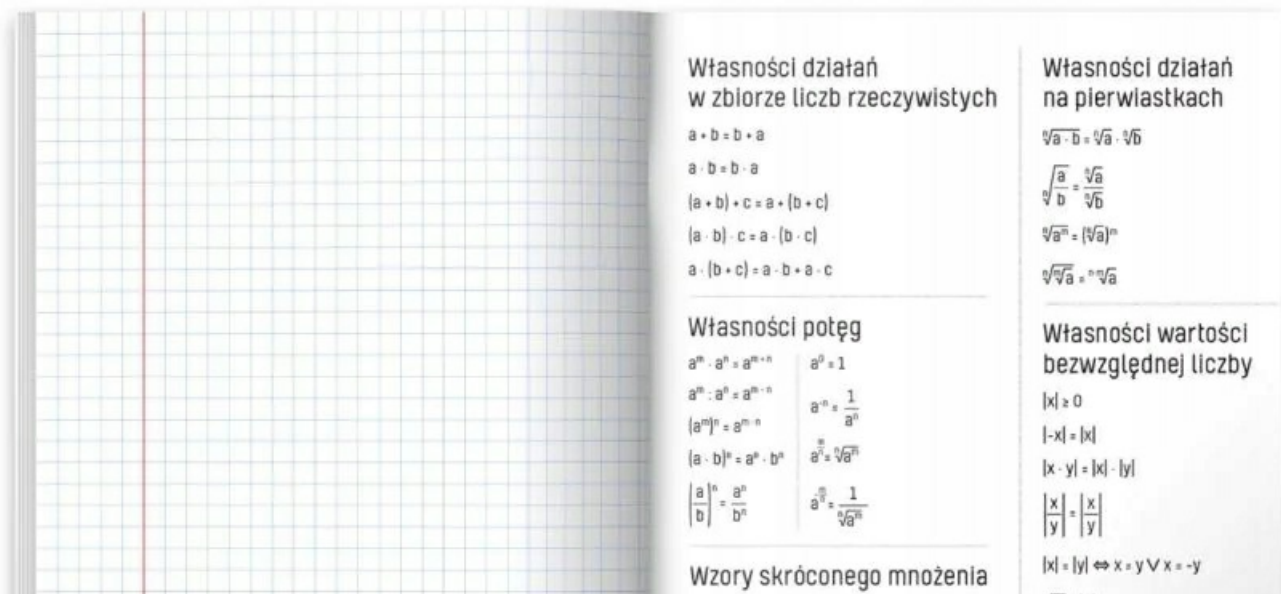 Własności działań
w zbiorze liczb rzeczywistych
a + b = b + a
a · b = b · a
(a + b) + c = a + (b + c)
(a · b) · c = a · (b · c)
a · (b + c) = a · b + a · c
Własności potęg
aᵐ · aⁿ = aᵐ⁺ⁿ
aᵐ : aⁿ = aᵐ⁻ⁿ
(aᵐ)ⁿ = aᵐ·ⁿ
(a · b)ⁿ = aⁿ · bⁿ
(a/b)ⁿ = aⁿ/bⁿ
a⁰ = 1
a⁻ⁿ = 1/aⁿ
a^(m/n) = ⁿ√aᵐ
a^(-m/n) = 1/ⁿ√aᵐ
Wzory skróconego mnożenia
Własności działań
na pierwiastkach
ⁿ√(a · b) = ⁿ√a · ⁿ√b
ⁿ√(a/b) = ⁿ√a/ⁿ√b
ⁿ√aᵐ = (ⁿ√a)ᵐ
ⁿ√ᵐ√a = ⁿ·ᵐ√a
Własności wartości
bezwzględnej liczby
|x| ≥ 0
|-x| = |x|
|x · y| = |x| · |y|
|x|/|y| = |x/y|
|x| = |y| ⇔ x = y ∨ x = -y